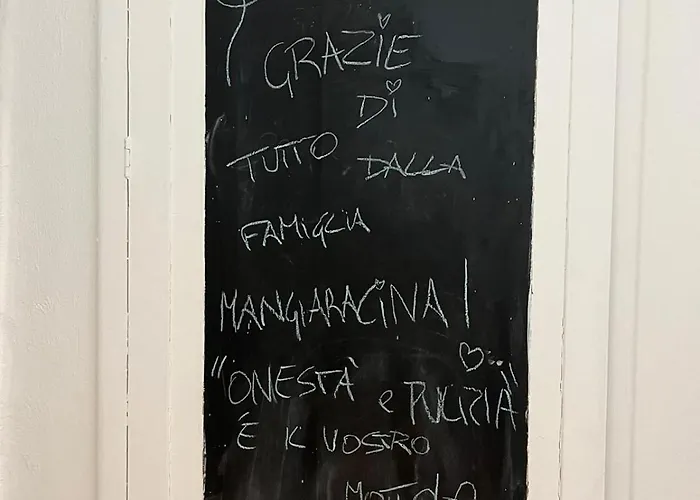 GRAZIE
DI
TUTTO DALLA
FAMIGLIA
MANGIARACINA!
"ONESTÀ e PULIZIA"
È IL VOSTRO
MOTTO